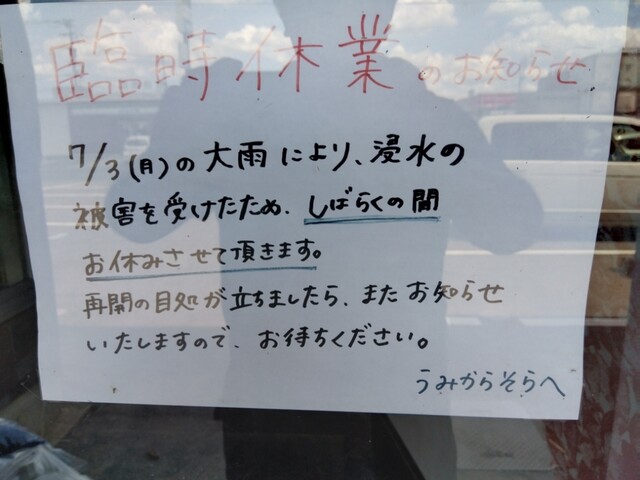 臨時休業のお知らせ
7/3(月)の大雨により、浸水の
被害を受けたため、しばらくの間
お休みさせて頂きます。
再開の目処が立ちましたら、またお知らせ
いたしますので、お待ちください。
うみからそらへ